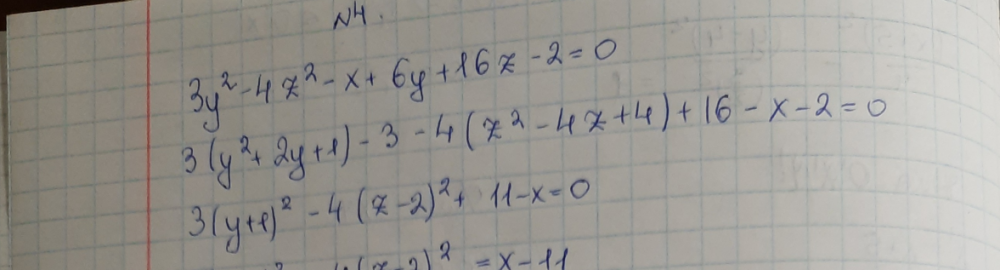 №4.
3y² - 4z² - x + 6y + 16z - 2 = 0
3(y² + 2y + 1) - 3 - 4(z² - 4z + 4) + 16 - x - 2 = 0
3(y+1)² - 4(z-2)² + 11 - x = 0
4(z-2)² = x - 11